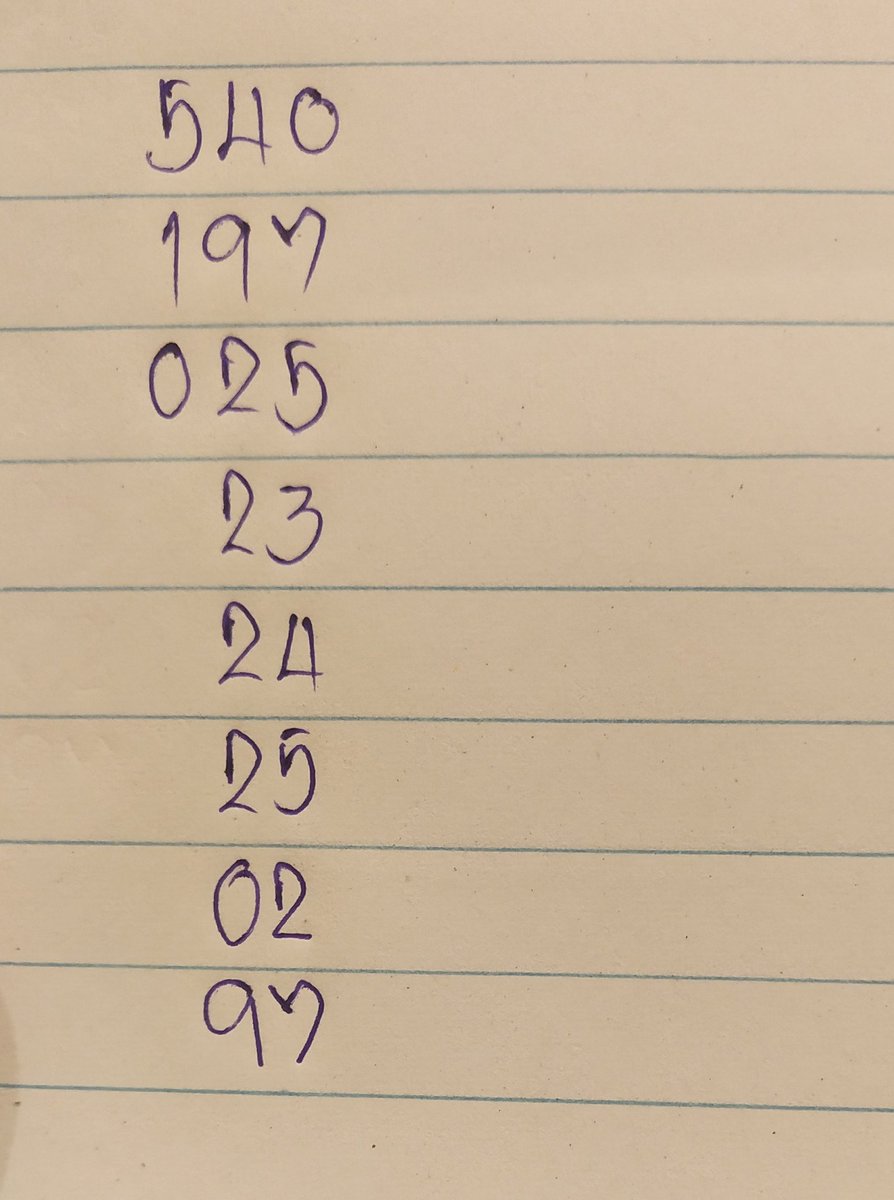 540
197
025
23
24
25
02
97